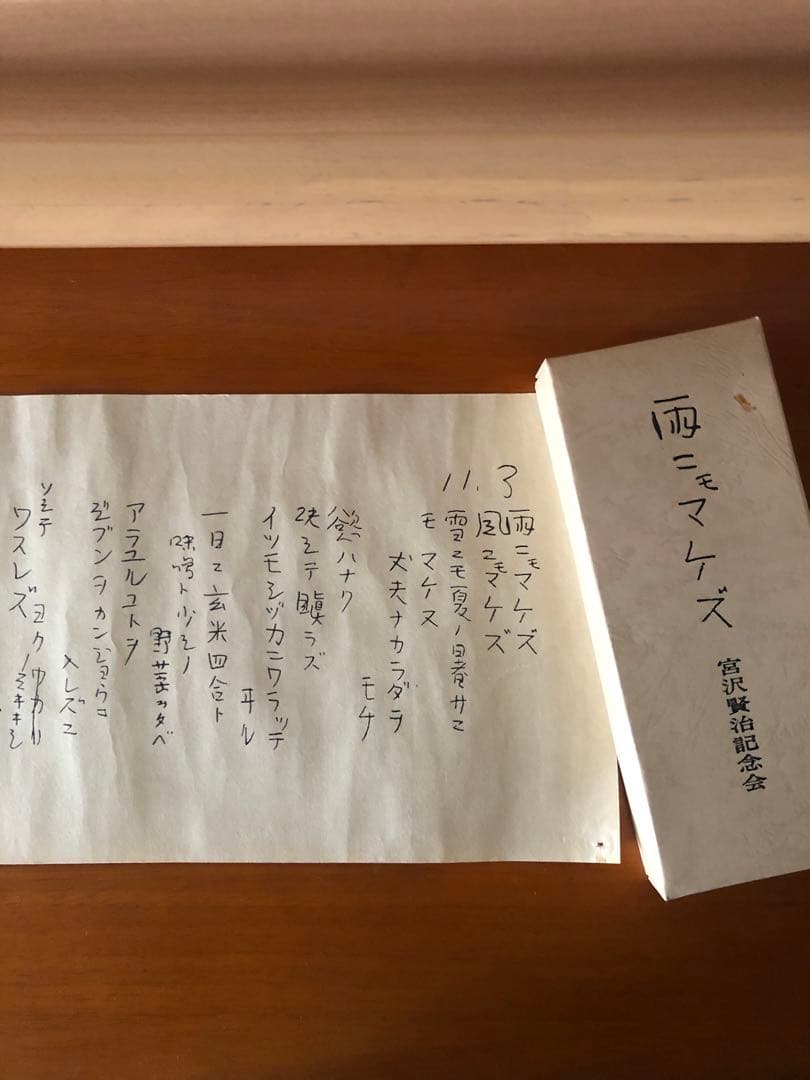 雨ニモマケズ
宮沢賢治記念会
11.3
雨ニモマケズ
風ニモマケズ
雪ニモ夏ノ暑サニ
モ マケヌ
丈夫ナカラダヲ
モチ
慾ハナク
決シテ瞋ラズ
イツモシヅカニワラッテ
ヰル
一日ニ玄米四合ト
味噌ト少シノ
野菜ヲタベ
アラユルコトヲ
ジブンヲカンジョウニ
入レズニ
ヨク ワカリ
ミキキシ
ソシテ
ワスレズ